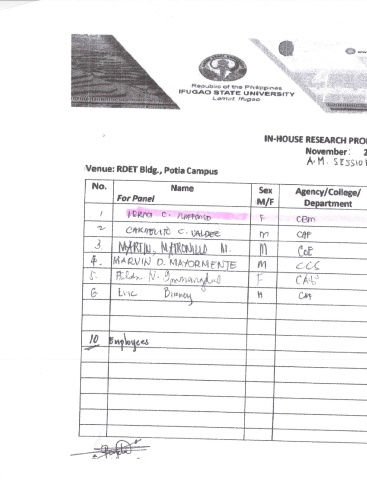 Republic of the Philippines
IFUGAO STATE UNIVERSITY
Lamut, Ifugao
IN-HOUSE RESEARCH PRO
November: 2
A.M. SESSIO
Venue: RDET Bldg., Potia Campus
No. Name Sex M/F Agency/College/ Department
For Panel
1 C. F CBM
2 CARMELITO C. VALDEZ M CAF
3 MARTIN, MATRONILLO M. M CoE
4. MARVIN D. MAYORMENTE M CCS
5. N. F CAS
6 Eric M
10 Employees